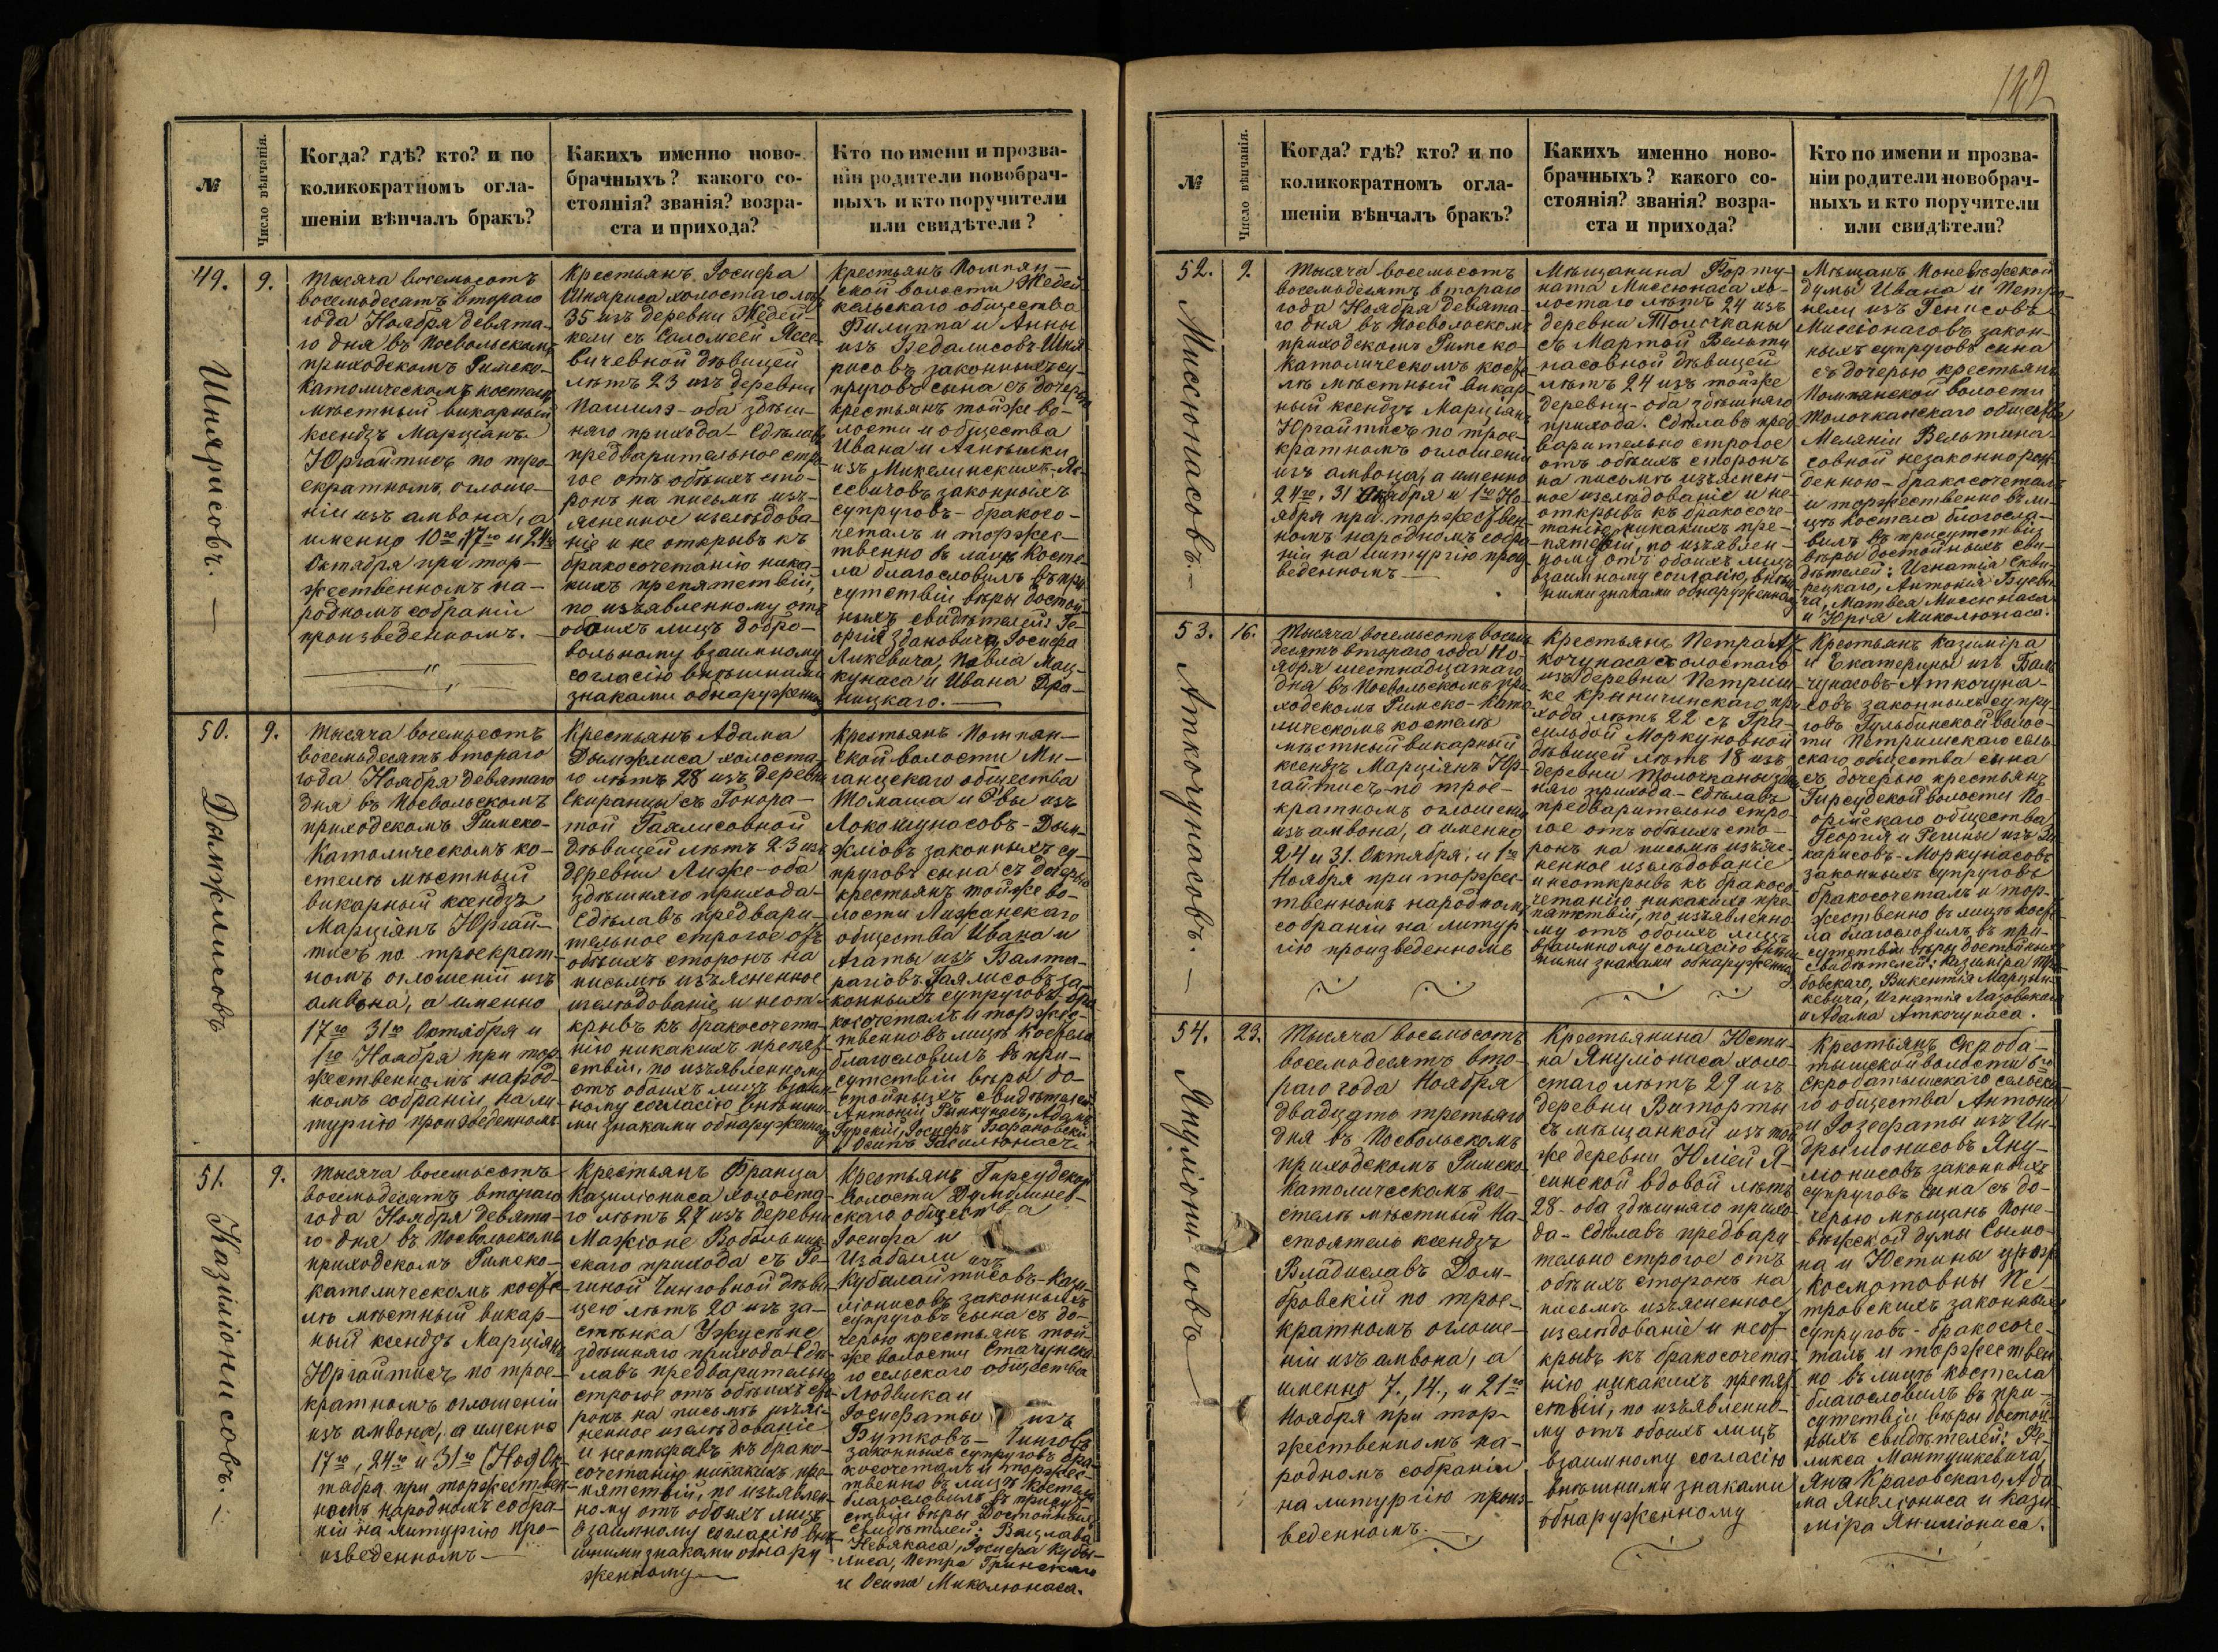 142
№
Число вѣнчанія.
Когда? гдѣ? кто? и по
коликократномъ огла-
шеніи вѣнчалъ бракъ?
Какихъ именно ново-
брачныхъ? какого со-
стоянія? званія? возра-
ста и прихода?
Кто по имени и прозва-
нію родители новобрач-
ныхъ и кто поручители
или свидѣтели?
49.
Шнярисовъ. —
9.
Тысяча восемьсотъ
восемьдесятъ втораго
года Ноября девята-
го дня въ Посвольскомъ
приходскомъ Римско-
Католическомъ костелѣ
мѣстный викарный
ксендзъ Марціянъ
Юргайтисъ по тро-
екратномъ оглаше-
ніи изъ амвона, а
именно 10го, 17го и 24го
Октября при тор-
жественномъ на-
родномъ собраніи
произведенномъ. —
Крестьянъ Іосифа
Шняриса холостаго лѣтъ
35 изъ деревни Жедей-
кели съ Саломеей Ясе-
вичевной дѣвицей
лѣтъ 23 изъ деревни
оба здѣш-
няго прихода - Сдѣлавъ
предварительное стро-
гое отъ обѣихъ сто-
ронъ на письмѣ изъ-
ясненное изслѣдова-
ніе и не открывъ къ
бракосочетанію ника-
кихъ препятствій,
по изъявленному отъ
обоихъ лицъ добро-
вольному взаимному
согласію внѣшними
знаками обнаруженному
Крестьянъ Помпян-
ской волости Жедей-
кельскаго общества
Филиппа и Анны
изъ Бедалисовъ Шня-
рисовъ законныхъ су-
пруговъ сына съ дочерью
крестьянъ тойже во-
лости и общества
Ивана и Агнѣшки
изъ Микелинскихъ-Яс-
севичовъ законныхъ
супруговъ - бракосо-
четалъ и торжес-
твенно въ лицѣ Косте-
ла благословилъ въ при-
сутствіи вѣры достой-
ныхъ свидѣтелей: Ге-
оргія Здановича, Іосифа
Ликевича, Павла Мац-
кунаса и Ивана Дра-
ницкаго. —
50.
Дымжлисовъ
9.
Тысяча восемьсотъ
восемьдесятъ втораго
года Ноября девятаго
дня въ Посвольскомъ
приходскомъ Римско-
Католическомъ ко-
стелѣ мѣстный
викарный ксендзъ
Марціянъ Юргай-
тисъ по троекрат-
номъ оглашеніи изъ
амвона, а именно
17го 31го Октября и
1го Ноября при тор-
жественномъ народ-
номъ собраніи на ли-
тургію произведенномъ
Крестьянъ Адама
Дымжлиса холоста-
го лѣтъ 28 изъ деревни
Скиранцы съ Гонора-
той Гаялисовной
дѣвицей лѣтъ 23 изъ
деревни Лиже - оба
здѣшняго прихода -
Сдѣлавъ предвари-
тельное строгое отъ
обѣихъ сторонъ на
письмѣ изъясненное
изслѣдованіе и неот-
крывъ къ бракосочета-
нію никакихъ препят-
ствій, по изъявленному
отъ обоихъ лицъ взаим-
ному согласію внѣшни-
ми знаками обнаруженному
Крестьянъ Помпян-
ской волости Ми-
ганцскаго общества
Томаша и Евы изъ
Локошунасовъ - Дым-
жлісовъ законныхъ су-
пруговъ сына съ дочерью
крестьянъ тойже во-
лости Лижанскаго
общества Ивана и
Агаты изъ Валта-
рагісовъ Гаялисовъ за-
конныхъ супруговъ - бра-
косочеталъ и торжес-
твенно въ лицѣ Костела
благословилъ въ при-
сутствіи вѣры до-
стойныхъ свидѣтелей
Антоній Ранкунасъ, Адамъ
Гурскій, Іосифъ Барановскій
и Осипъ Гасилюнасъ.
51.
Казиліонисовъ. —
9.
Тысяча восемьсотъ
восемьдесятъ втораго
года Ноября девята-
го дня въ Посвольскомъ
приходскомъ Римско-
католическомъ косте-
лѣ мѣстный викар-
ный ксендзъ Марціянъ
Юргайтисъ по трое-
кратномъ оглашеніи
изъ амвона, а именно
17го, 24го и 31го Ок-
тября при торжествен-
номъ народномъ собра-
ніи на литургію про-
изведенномъ —
Крестьянъ Франца
Казиліониса холоста-
го лѣтъ 27 изъ деревни
Мажіоне Вобольник-
скаго прихода съ Ре-
гиной Чинговной дѣви-
цею лѣтъ 20 изъ за-
стѣнка Ужусѣне
здѣшняго прихода - Сдѣ-
лавъ предварительно
строгое отъ обѣихъ сто-
ронъ на письмѣ изъяс-
ненное изслѣдованіе
и неоткрывъ къ брако-
сочетанію никакихъ пре-
пятствій, по изъявлен-
ному отъ обоихъ лицъ
взаимному согласію внѣ-
шними знаками обнару-
женному —
Крестьянъ Гирсудской
волости Думблинев-
скаго общества
Іосифа и
Изабелли изъ
Кубилайтисовъ - Кази-
ліонисовъ законныхъ
супруговъ сына съ до-
черью крестьянъ той-
же волости Стачунска-
го сельскаго общества
Людвика и
Іосифаты изъ
Бутковъ - Чинговъ
законныхъ супруговъ бра-
косочеталъ и торжес-
твенно въ лицѣ костела
благословилъ въ присут-
ствіи вѣры достойныхъ
свидѣтелей: Вацлава
Невякаса, Іосифа Кубы-
лиса, Петра Гринскаго
и Осипа Миколюнаса.
№
Число вѣнчанія.
Когда? гдѣ? кто? и по
коликократномъ огла-
шеніи вѣнчалъ бракъ?
Какихъ именно ново-
брачныхъ? какого со-
стоянія? званія? возра-
ста и прихода?
Кто по имени и прозва-
ніи родители новобрач-
ныхъ и кто поручители
или свидѣтели?
52.
Мисюнасовъ. —
9.
Тысяча восемьсотъ
восемьдесятъ втораго
года Ноября девята-
го дня въ Посвольскомъ
приходскомъ Римско-
Католическомъ косте-
лѣ мѣстный викар-
ный ксендзъ Марціянъ
Юргайтисъ по трое-
кратномъ оглашеніи
изъ амвона, а именно
24го, 31 Октября и 1го Но-
ября при торжествен-
номъ народномъ собра-
ніи на литургію произ-
веденномъ —
Мѣщанина Форту-
ната Миссюнаса хо-
лостаго лѣтъ 24 изъ
деревни Толочканы
съ Мартой Вельти-
насовной дѣвицей
лѣтъ 24 изъ тойже
деревни - оба здѣшняго
прихода. Сдѣлавъ пред-
варительно строгое
отъ обѣихъ сторонъ
на письмѣ изъяснен-
ное изслѣдованіе и не-
открывъ къ бракосоче-
танію никакихъ пре-
пятствій, по изъявлен-
ному отъ обоихъ лицъ
взаимному согласію, внѣш-
ними знаками обнаруженному
Мѣщанъ Поневѣжской
думы Ивана и Петро-
нели изъ Генисовъ
Миссіонасовъ закон-
ныхъ супруговъ сына
съ дочерью крестьянъ
Помпянской волости
Толочканскаго общества
Меляніи Вельтина-
совной незаконнорож-
денною - бракосочеталъ
и торжественно въ ли-
цѣ Костела благосло-
вилъ въ присутствіи
вѣры достойныхъ сви-
дѣтелей: Игнатія Скви-
рецкаго, Антонія Буеви-
ча, Матвея Миссюнаса
и Юрія Миколюнаса.
53.
Аткочунасовъ. —
16.
Тысяча восемьсотъ восемь-
десятъ втораго года Но-
ября шестнадцатаго
дня въ Посвольскомъ при-
ходскомъ Римско-Като-
лическомъ костелѣ
мѣстный викарный
ксендзъ Марціянъ Юр-
гайтисъ по трое-
кратномъ оглашеніи
изъ амвона, а именно
24 и 31. Октября, и 1го
Ноября при торжес-
твенномъ народномъ
собраніи на литур-
гію произведенномъ
Крестьянъ Петра Ат-
кочунаса холостаго
изъ деревни Петриш-
ке Крыничинскаго при-
хода лѣтъ 22 съ Гра-
сильдой Моркуновной
дѣвицей лѣтъ 18 изъ
деревни Толочканы здѣш-
няго прихода - Сдѣлавъ
предварительно стро-
гое отъ обѣихъ сто-
ронъ на письмѣ изъяс-
ненное изслѣдованіе
и неоткрывъ къ бракосо-
четанію никакихъ пре-
пятствій, по изъявленно-
му отъ обоихъ лицъ
взаимному согласію внѣш-
ними знаками обнаруженному
Крестьянъ Казиміра
и Екатерины изъ Бал-
чунасовъ - Аткочуна-
совъ законныхъ супру-
говъ Гульбинской волос-
ти Петришскаго сель-
скаго общества сына
съ дочерью крестьянъ
Гирсудской волости По-
орійскаго общества
Георгія и Регины изъ
карисовъ - Моркунасовъ
законныхъ супруговъ
бракосочеталъ и тор-
жественно въ лицѣ косте-
ла благословилъ въ при-
сутствіи вѣры достойныхъ
свидѣтелей: Казиміра
бовскаго, Викентія Марцин-
кевича, Игнатія Лазовскаго
и Адама Аткочунаса.
54.
Януліони-
совъ —
23.
Тысяча восемьсотъ
восемьдесятъ вто-
раго года Ноября
двадцать третьяго
дня въ Посвольскомъ
приходскомъ Римско-
Католическомъ ко-
стелѣ мѣстный На-
стоятель ксендзъ
Владиславъ Дом-
бровскій по трое-
кратномъ оглаше-
ніи изъ амвона, а
именно 7., 14., и 21го
Ноября при тор-
жественномъ на-
родномъ собраніи
на литургію произ-
веденномъ. —
Крестьянина Юсти-
на Януліониса холо-
стаго лѣтъ 29 изъ
деревни Виторты
съ мѣщанкой изъ той
же деревни Юліей Я-
синской вдовой лѣтъ
28 - оба здѣшняго прихо-
да - Сдѣлавъ предвари-
тельно строгое отъ
обѣихъ сторонъ на
письмѣ изъясненное
изслѣдованіе и неот-
крывъ къ бракосочета-
нію никакихъ препят-
ствій, по изъявленно-
му отъ обоихъ лицъ
взаимному согласію
внѣшними знаками
обнаруженному
Крестьянъ Скроба-
тишской волости
Скробатишскаго сельска-
го общества Антона
и Іозефаты изъ Ин-
дрыліонисовъ Яну-
ліонисовъ законныхъ
супруговъ сына съ до-
черью мѣщанъ Поне-
вѣжской думы Симо-
на и Юстины урож.
Космотовны Пе-
тровскихъ законныхъ
супруговъ - бракосоче-
талъ и торжествен-
но въ лицѣ костела
благословилъ въ при-
сутствіи вѣры достой-
ныхъ свидѣтелей: Фе-
ликса Мантушкевича,
Яна Красовскаго, Ада-
ма Янеліониса и Кази-
міра Януліониса.